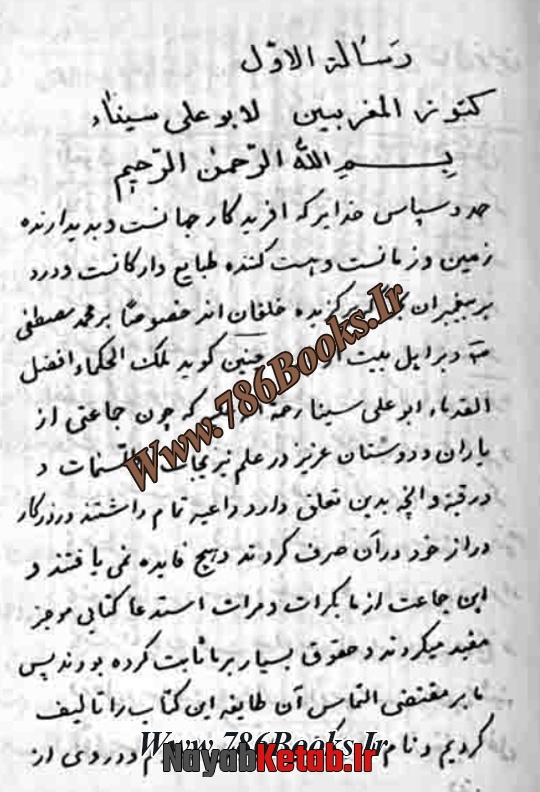 رسالة الاوّل
كنوز المغربين لابو علی سیناء
بِسمِ الله الرّحمن الرّحیم
حمد و سپاس خدایرکه افریدکار جهانست و بدیدارنده
زمین و زمانست و هست کننده طبایع و ارکانست و درد
بر پیغمبران کزیده خلقان اند خصوصًا بر محمد مصطفی
و بر اهل بیت چنین کوید ملک الحکماء افضل
القدماء ابو علی سینا رحمة که چون جماعتی از
یاران و دوستان عزیز در علم نیرنجات طلسمات و
و رقیه و انچه بدین تعلق دارد داعیه تمام داشتند و رزرکار
دراز خود در آن صرف کردند و هیچ فایده نمی یافتند و
این جماعت از ما بکرات و مرات استدعا کتابی موجز
مفید میکردند و حقوق بسیار بر ما ثابت کرده بودند پس
ما بر مقتضی التماس آن طایفه این کتاب را تالیف
کردیم و نام در وی از
Www.786Books.Ir
Www.786Books.Ir
NayabKetab.Ir